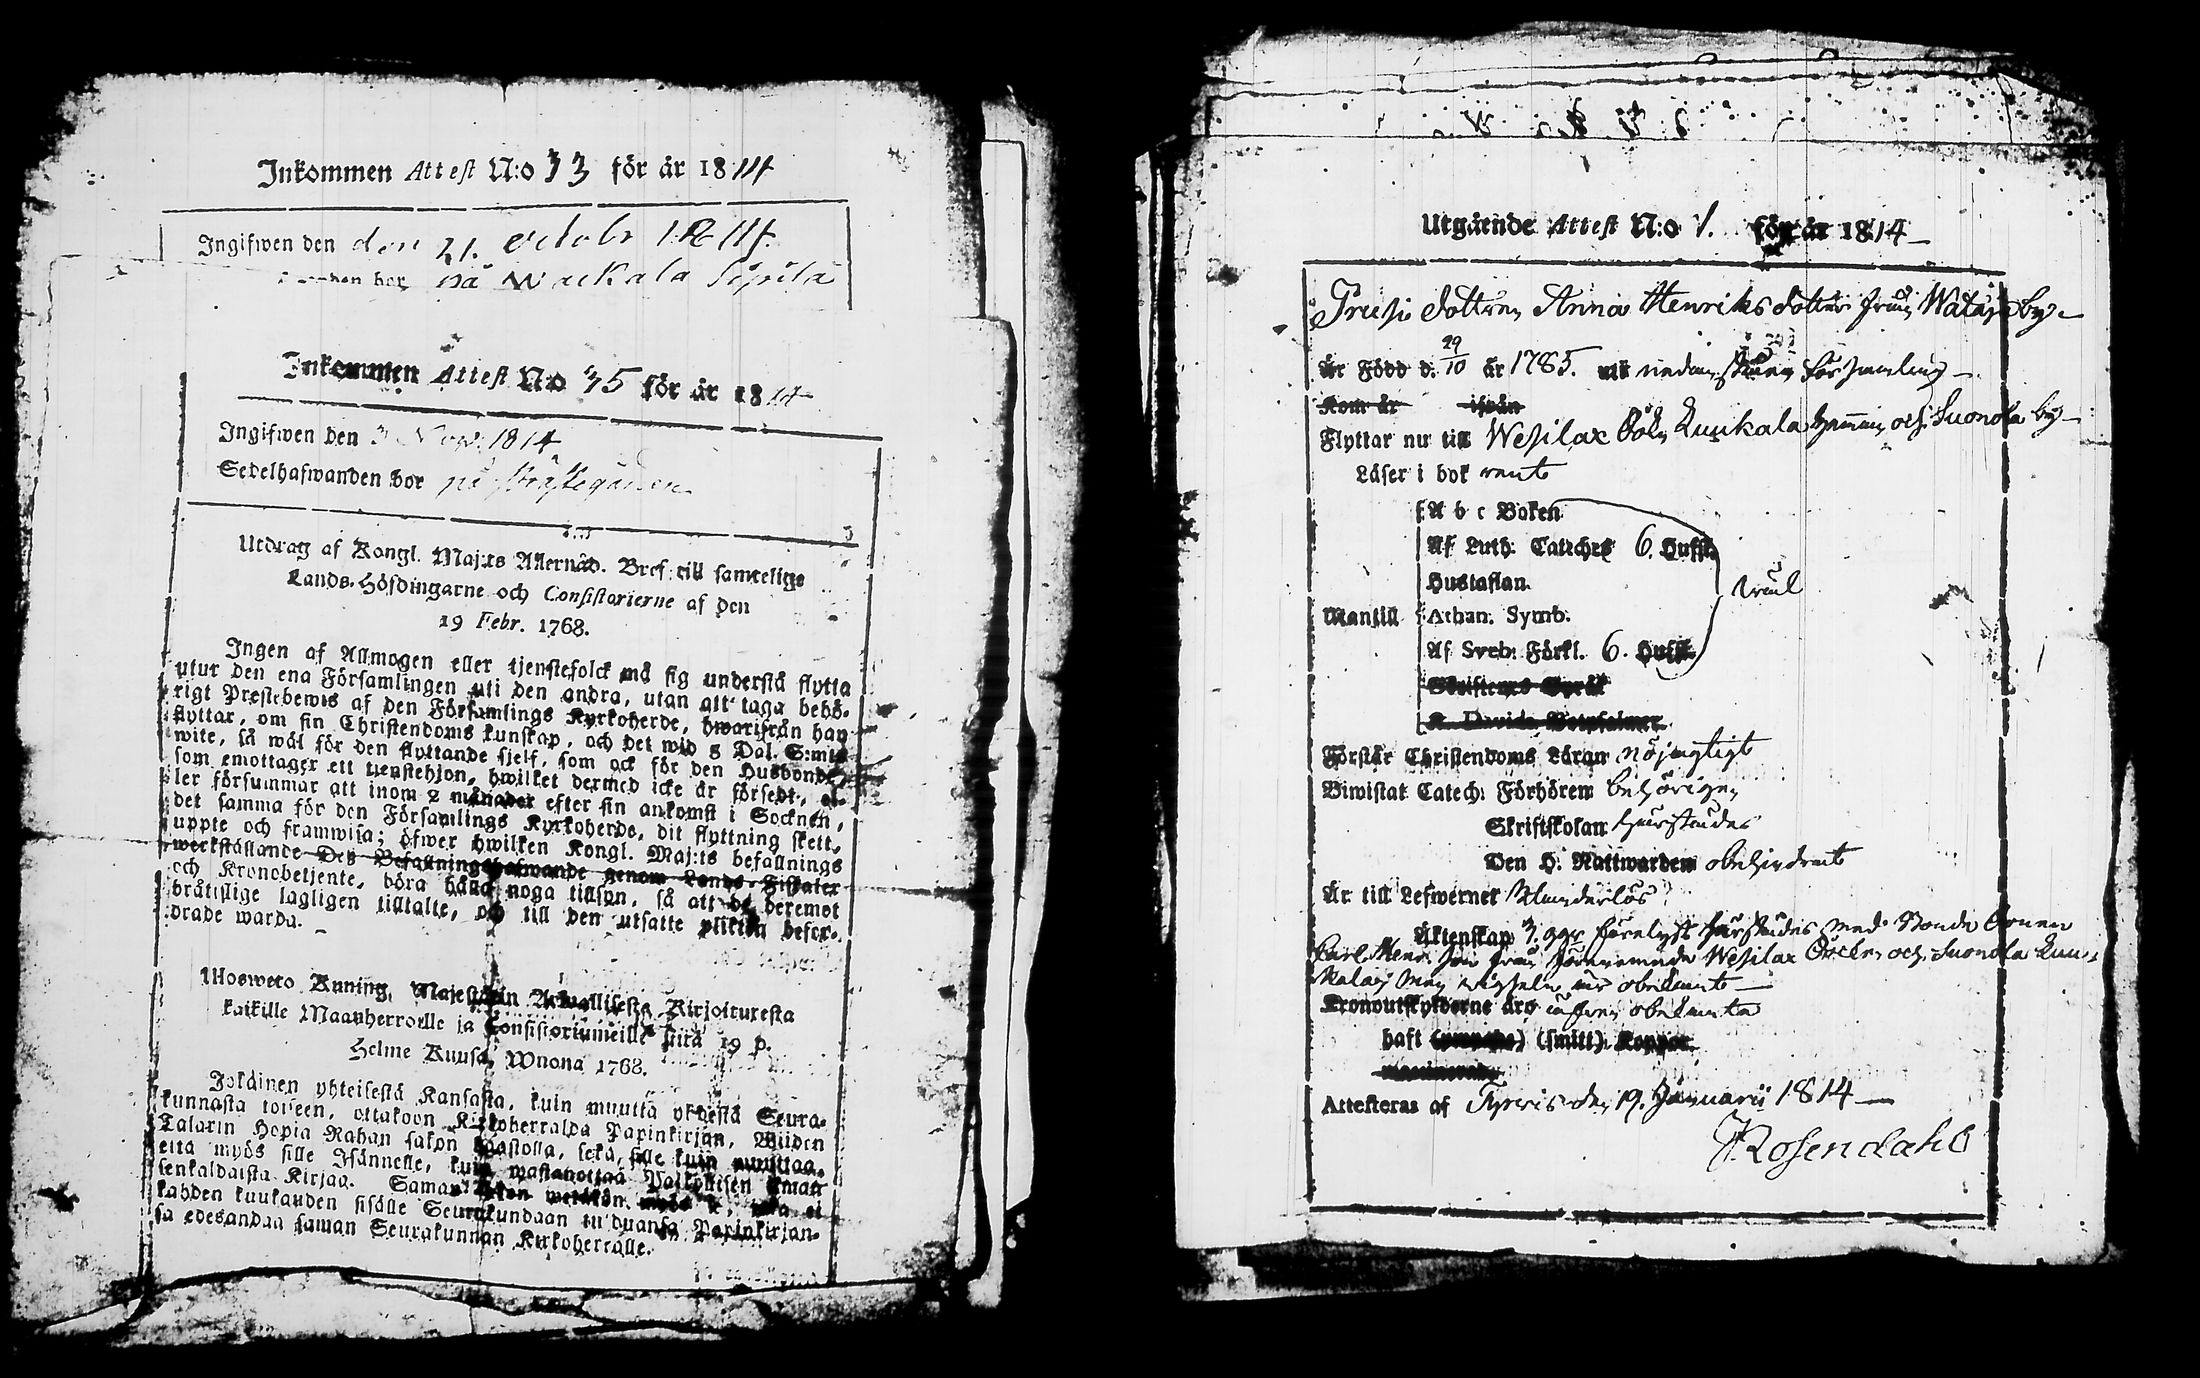 Inkommen Attest N:o 33 för år 1814
Ingifwen den den 21. Octobr 1814.
bor på Wackala Sipilä
Inkommen Attest N:o 35 för år 1814
Ingifwen den 3 Nov. 1814
Sedelhafwanden bor på Prästegården
Utdrag af Kongl. Maj:ts Allernåd. Bref till samtelige
Lands-Höfdingarne och Consistorierne af den
19 Febr. 1768.
Ingen af Allmogen eller tjenstefolck må sig understå flytta
utur den ena Församlingen uti den andra, utan att taga behö-
rigt Prestebewis af den Församlings Kyrkoherde, hwarifrån han
flyttar, om sin Christendoms kunskap, och det wid 5 Dal. S:mts
wite, så wäl för den flyttande sjelf, som ock för den Husbonde,
som emottager ett tjenstehjon, hwilket dermed icke är försedt, el-
ler försummar att inom 2 månader efter sin ankomst i Socknen,
det samma för den Församlings Kyrkoherde, dit flyttning skett,
uppte och framwisa; öfwer hwilken Kongl. Maj:ts befallnings
werkställande Deß Befallningshafwande genom Lands-Fiskaler
och Kronobetjente, böra hålla noga tillsyn, så att de deremot
brätislige lagligen tilltalte, och till den utsatte plikten befor-
drade warda.
Ulosweto Kuning. Majestetin Armollisesta Kirjoituxesta
kaikille Maanherroille ja Consistoriumeille siitä 19 p.
Helme Kuusa, Wuona 1768.
Jokainen yhteisestä Kansasta, kuin muutta yhdestä Seura-
kunnasta toiseen, ottakoon Kirkoherralda Papinkirjan, Wiiden
Talarin Hopia Rahan sakon haastolla, sekä, sille kuin muuttaa,
että myös sille Isännelle, kuin wastanottaa Palkollisen ilman
senkaldaista Kirjaa. Saman sakon wetäkön myös se, joka ei
kahden kuukauden sisälle Seurakundaan tulduansa Papinkirjan-
sa edesandaa saman Seurakunnan Kirkoherralle.
Utgående Attest N:o 1. för år 1814
Anna Henriks dotter från by
Är Född d. 29/10 år 1785. uti nedanskrefne församling
Kom år ifrån
Flyttar nu till Wesilax Kuukala och Suonola by
Läser i bok rent
A b c Boken
Af Luth. Catiches 6. Hufst.
Hustaflan
Mantill Athan. Symb.
Af Sveb: Förkl. 6. Hufst.
Skriftenes Språk
K. Davids Botpsalmer
Förstår Christendoms Läran nöjagtigt
Biwistat Catech: Förhören behörigen
Skriftskolan härstädes
Den H. Nattwarden obehindrat
Är till Lefwernet klanderlös
Äktenskap 3. ggr förelyst härstädes med Bonde Sonen
Carl Henr: son från förenemnde Wesilax och Suonola
obekant
Kronoutskylderne äro obekanta
haft (ympade) (smitt) Koppor
Attesteras af Tyrvis den 19. Januarii 1814
Rosendahl